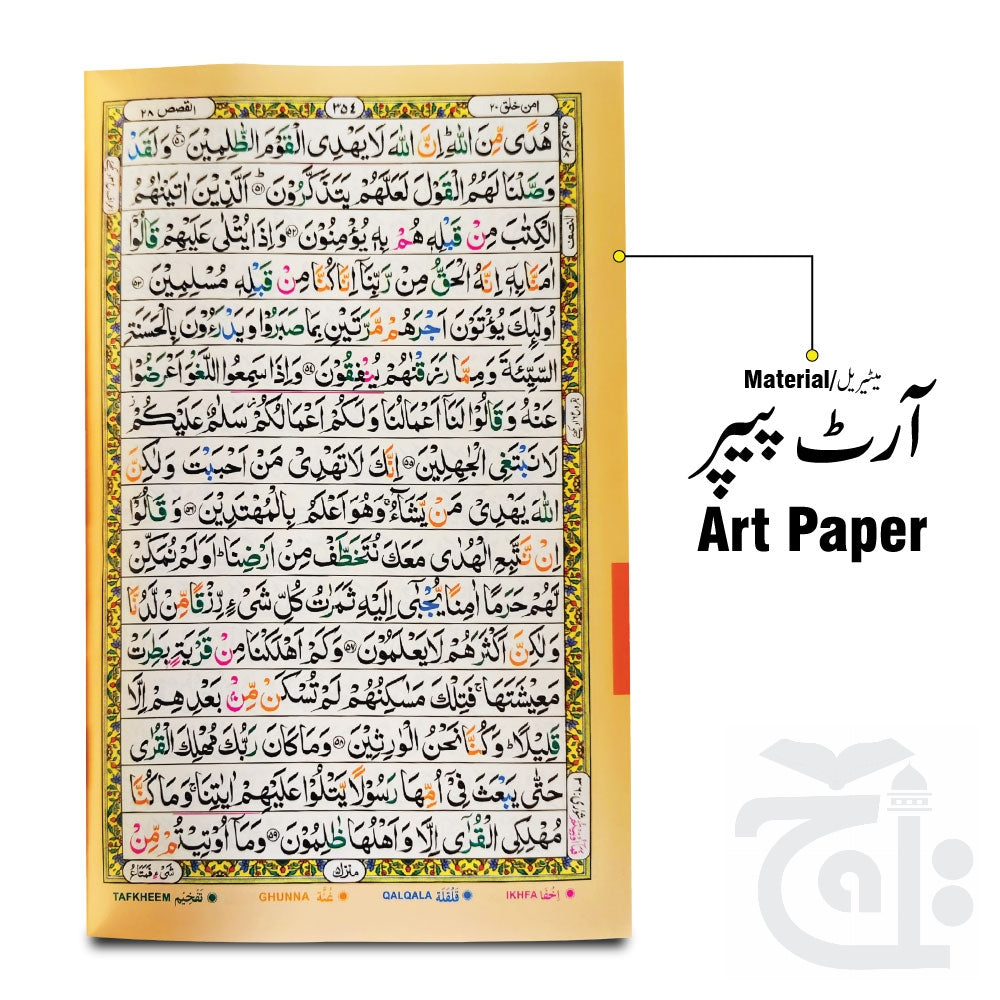 امن خلق ٢٠
٣٥٤
القصص ٢٨
هُدًى مِّنَ اللّٰهِ ؕ اِنَّ اللّٰهَ لَا يَهْدِى الْقَوْمَ الظّٰلِمِيْنَ ﴿٥٠﴾ وَلَقَدْ
وَصَّلْنَا لَهُمُ الْقَوْلَ لَعَلَّهُمْ يَتَذَكَّرُوْنَ ؕ ﴿٥١﴾ اَلَّذِيْنَ اٰتَيْنٰهُمُ
الْكِتٰبَ مِنْ قَبْلِهٖ هُمْ بِهٖ يُؤْمِنُوْنَ ﴿٥٢﴾ وَاِذَا يُتْلٰى عَلَيْهِمْ قَالُوْۤا
اٰمَنَّا بِهٖۤ اِنَّهُ الْحَقُّ مِنْ رَّبِّنَاۤ اِنَّا كُنَّا مِنْ قَبْلِهٖ مُسْلِمِيْنَ ﴿٥٣﴾
اُولٰٓئِكَ يُؤْتَوْنَ اَجْرَهُمْ مَّرَّتَيْنِ بِمَا صَبَرُوْا وَيَدْرَءُوْنَ بِالْحَسَنَةِ
السَّيِّئَةَ وَمِمَّا رَزَقْنٰهُمْ يُنْفِقُوْنَ ﴿٥٤﴾ وَاِذَا سَمِعُوا اللَّغْوَ اَعْرَضُوْا
عَنْهُ وَقَالُوْا لَنَاۤ اَعْمَالُنَا وَلَكُمْ اَعْمَالُكُمْ سَلٰمٌ عَلَيْكُمْ
لَا نَبْتَغِى الْجٰهِلِيْنَ ﴿٥٥﴾ اِنَّكَ لَا تَهْدِىْ مَنْ اَحْبَبْتَ وَلٰكِنَّ
اللّٰهَ يَهْدِىْ مَنْ يَّشَآءُ ۚ وَهُوَ اَعْلَمُ بِالْمُهْتَدِيْنَ ﴿٥٦﴾ وَقَالُوْۤا
اِنْ نَّتَّبِعِ الْهُدٰى مَعَكَ نُتَخَطَّفْ مِنْ اَرْضِنَا ؕ اَوَلَمْ نُمَكِّنْ
لَّهُمْ حَرَمًا اٰمِنًا يُّجْبٰٓى اِلَيْهِ ثَمَرٰتُ كُلِّ شَىْءٍ رِّزْقًا مِّنْ لَّدُنَّا
وَلٰكِنَّ اَكْثَرَهُمْ لَا يَعْلَمُوْنَ ﴿٥٧﴾ وَكَمْ اَهْلَكْنَا مِنْ قَرْيَةٍۭ بَطِرَتْ
مَعِيْشَتَهَا ۚ فَتِلْكَ مَسٰكِنُهُمْ لَمْ تُسْكَنْ مِّنْۢ بَعْدِهِمْ اِلَّا
قَلِيْلًا ؕ وَكُنَّا نَحْنُ الْوٰرِثِيْنَ ﴿٥٨﴾ وَمَا كَانَ رَبُّكَ مُهْلِكَ الْقُرٰى
حَتّٰى يَبْعَثَ فِىْۤ اُمِّهَا رَسُوْلًا يَّتْلُوْا عَلَيْهِمْ اٰيٰتِنَا ۚ وَمَا كُنَّا
مُهْلِكِى الْقُرٰٓى اِلَّا وَاَهْلُهَا ظٰلِمُوْنَ ﴿٥٩﴾ وَمَاۤ اُوْتِيْتُمْ مِّنْ
منزل ٥
شَىْءٍ فَمَتَاعُ
TAFKHEEM تَفْخِيْم
GHUNNA غُنَّة
QALQALA قَلْقَلَة
IKHFA اِخْفَا
النصف
Material/میٹیریل
آرٹ پیپر
Art Paper